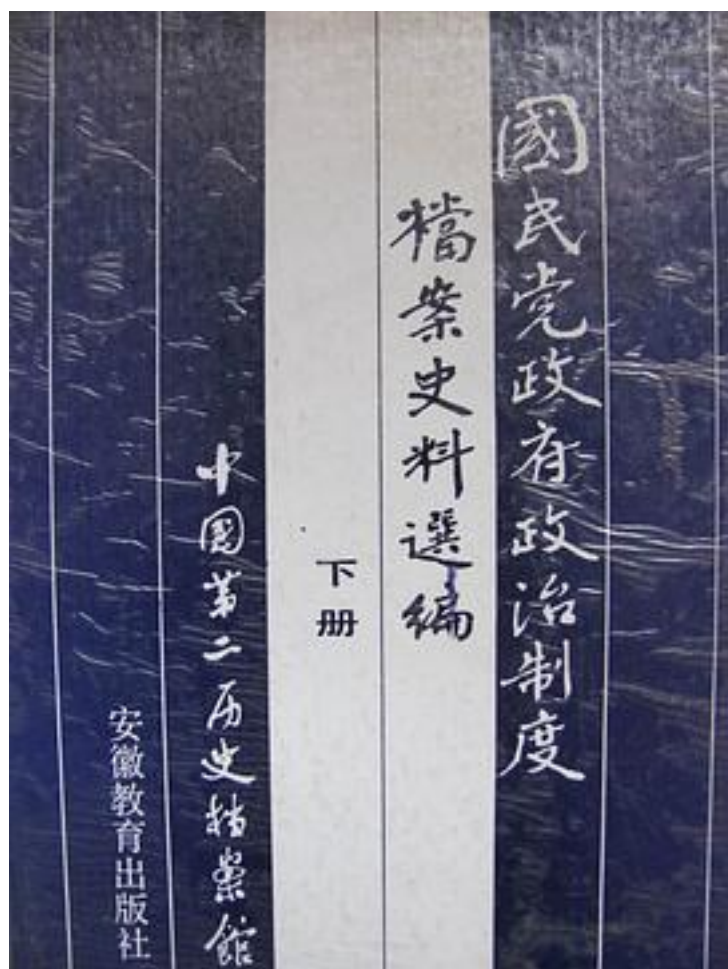 國民党政府政治制度
檔案史料選編
下册
中國第二历史档案館
安徽教育出版社